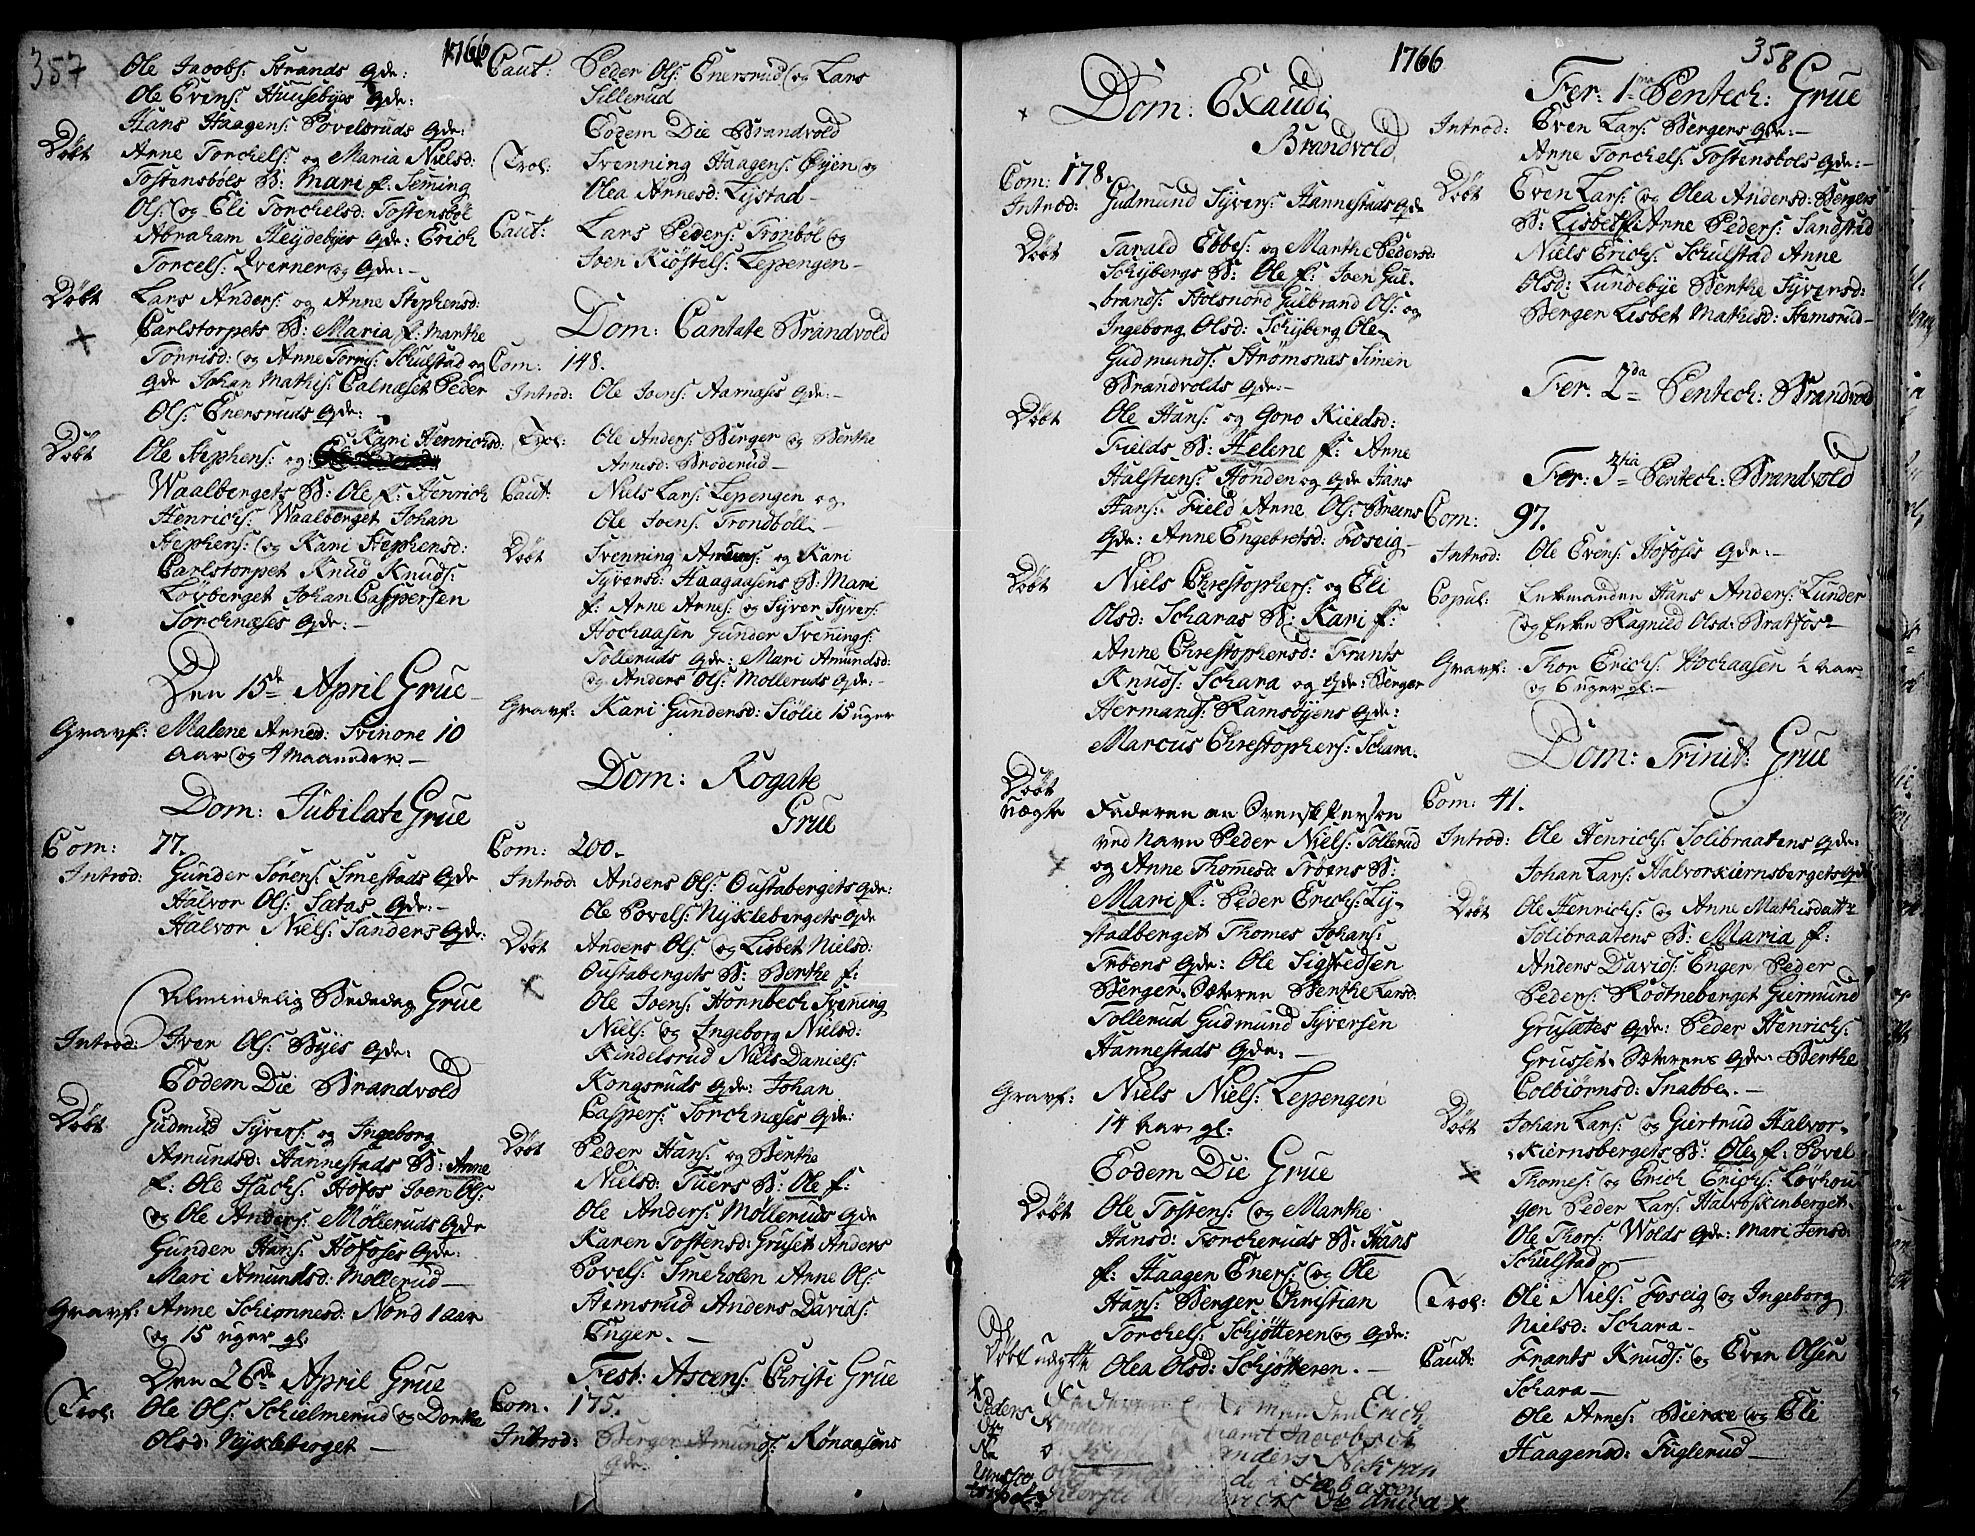 357
1766
Ole Jacobs: Strands qde:
Ole Evens: Huusebyes qde:
Hans Haagens: Povelsruds qde:
Døbt Anne Torchels: og Maria Nielsd:
Tostensbøls B: Mari f: Semming
Ols: og Eli Torchelsd: Tostensbøl
Abraham Heydebyes qde: Erich
Torcels: Qverneroq qde:-
Døbt Lars Anders: og Anne Stephensd:
Carlstorpets B: Maria f: Marthe
Tønnisd: og Anne Tønnis: Schulstad og
qde Johan Mathis: Calnæset Peder
Ols: Enersruds qde:
Døbt Ole Stephens: og Kari Henrichsd:
Waalbergets B: Ole f: Henrich
Henrichs: Waalberget Johan
Stephens: og Kari Stephensd:
Carlstorpet Knud Knuds:
Løvberget Johan Caspersen
Torchnæses qde:-
Den 15de April Grue
Gravf: Malene Arnesd: Svinore 10
aar og 4 Maaneder-
Dom: Jubilate Grue
Com: 77.
Introd: Gunder Sørens: Smestads qde
Halvor Ols: Sætas qde:-
Halvor Niels: Sanders qde:
Almindelig Bededag Grue
Introd: Iver Ols: Byes qde:
Eodem Die Brandvold
Døbt Gudmud Syvers: og Ingeborg
Amundsd: Hannestads B: Anne
f: Ole Isachs: Hofos Joen Ols:
og Ole Anders: Møllerud qde
Gunder Hans: Hofoses qde:
Mari Amundsd: Mollerud-
Gravf: Anne Schiønnesd: Nord 1 aar
og 15 uger gl:
Den 26de April Grue
Trol: Ole Ols: Schielmerud og Dorthe
Olsd: Nykleberget-
Caut: Peder Ols: Enersrud og Lars
Sillerud
Eodem Die Brandvold
Trol: Svenning Haagens: Øyen og
Olea Arnesd: Lystad-
Caut: Lars Peders: Tronbøl og
Joen Kiøstels: Lepengen-
Dom: Cantate Brandvold
Com: 148.
Introd: Ole Joens: Aarnæses qde:-
Trol: Ole Anders: Berger og Berthe
Arnesd: Broderud-
Caut: Niels Lars: Lepengen og
Ole Joens: Trondbøll-
Døbt Svenning Amunds: og Kari
Syversd: Haagaasens B: Mari
f: Arne Arnes: og Syver Syvers:
Hochaasen Gunder Svennings:
Tolleruds qde: Mari Amundsd:
og Anders Ols: Mølleruds qde:-
Gravf: Kari Gundersd: Siølie 15 uger
Dom: Rogate
Grue
Com: 200.
Introd: Anders Ols: Oustabergets qde:
Ole Povels: Nyklebergets qde
Døbt Anders Ols: og Lisbet Nielsd:
Oustabergets B: Berthe f:
Ole Joens: Hornbech Svenning
Niels: og Ingeborg Nielsd:
Kindelsrud Niels Daniels:
Kongsruds qde: Johan
Caspers: Torchnæses qde:
Døbt Peder Hans: og Berthe
Nielsd: Tuers B: Ole f:
Ole Anders: Mølleruds qde
Karen Tostensd: Gruset Anders
Povels: Smeholen Anne Ols:
Hemsrud Anders Davids:
Enger.-
Fest: Ascens: Christi Grue
Com. 175.
Introd: Berger Amunds: Rønaasens
qde:
1766
358
Dom: Exaudi
Brandvold
Com: 178.
Introd: Gudmund Syvers: Hannestads qde
Døbt Tarald Ebbes: og Marthe Pedersd:
Schybergs B: Ole f: Joen Gul-
brands: Holsnord Gulbrand Ols: og
Ingeborg Olsd: Schyberg Ole
Gudmunds: Strømsnæs Simen
Brandvolds qde:-
Døbt Ole Hans: og Goro Kieldsd:
Fields B: Helene f: Arne
Halstiens: Honden og qde Hans
Hans: Field Anne Ols: Breens
qde: Anne Engebretsd: Foseig-
Døbt Niels Chrestophers: og Eli
Olsd: Scharas B: Kari f:
Anne Chrestophersd: Frants
Knuds: Schara og qde: Berger
Hermands: Ramsøyens qde:
Marcus Chrestophers: Schara.
Døbt
uægte Faderen en Svensk Person
ved Navn Peder Niels: Tollerud
og Anne Thomesd: Trøens B:
Mari f: Peder Erichs: Ly-
stadberget Thomes Johans:
Trøens qde: Ole Sigfredsen
Berger. Sæteren Berthe Larsd:
Tollerud Gudmund Syversen
Hannestads qde:-
Gravf: Niels Niels: Lepengen
14 aar gl:
Eodem Die Grue
Døbt Ole Tostens: og Marthe
Hansd: Torcheruds B: Hans
f: Haagen Eners: og Ole
Hans: Berger Christian
Torchels: Schjøtteren og qde:
Olea Olsd: Schjøtteren.-
Døbt uægte
Faderen
Erich
Jacobs
Peders
Fer: 1ma Pentech: Grue
Introd: Even Lars: Bergers qde:-
Anne Torchels: Tostensbøls qde:-
Døbt Even Lars: og Olea Andersd: Bergers
B: Lisbet f: Anne Peders: Sandstad
Niels Erichs: Schulstad Anne
Olsd: Lundebye Berthe Syversd:
Bergen Lisbet Mathisd: Hemsrud-
Fer: 2da Pentech: Brandvold
Fer: 3tia Pentech: Brandvold
Com: 97.
Introd: Ole Evens: Hofoses qde:-
Copul: Enkmanden Hans Anders: Lunder
og Enken Ragnild Olsd: Bratfos-
Gravf: Thor Erichs: Hochaasen ½ aar
og 6 uger gl:-
Dom: Trinit: Grue
Com: 41.
Introd: Ole Henrichs: Solibraatens qde:
Johan Lars: Halvorkiernsbergets qde
Døbt Ole Henrichs: og Anne Mathisdatt:
Solibraatens B: Maria f:
Anders Davids: Enger Peder
Peders: Rødtneberget Giermund
Grusætes qde: Peder Henrichs:
Grusset. Sæterens qde: Berthe
Colbiørnsd: Snabbe.-
Døbt Johan Lars: og Giertrud Halvor-
kiernsbergets B: Ole f: Povel
Thomes: og Erich Erichs: Løvhou-
gen Peder Lars: Halvorskinberget
Ole Thors: Wolds qde: Mari Jensd:
Schulstad-
Trol: Ole Niels: Foseig og Ingeborg
Nielsd: Schara-
Caut: Frants Knuds: og Even Olsen
Schara-
Ole Arnes: Bierke og Eli
Haagensd: Fuglerud-